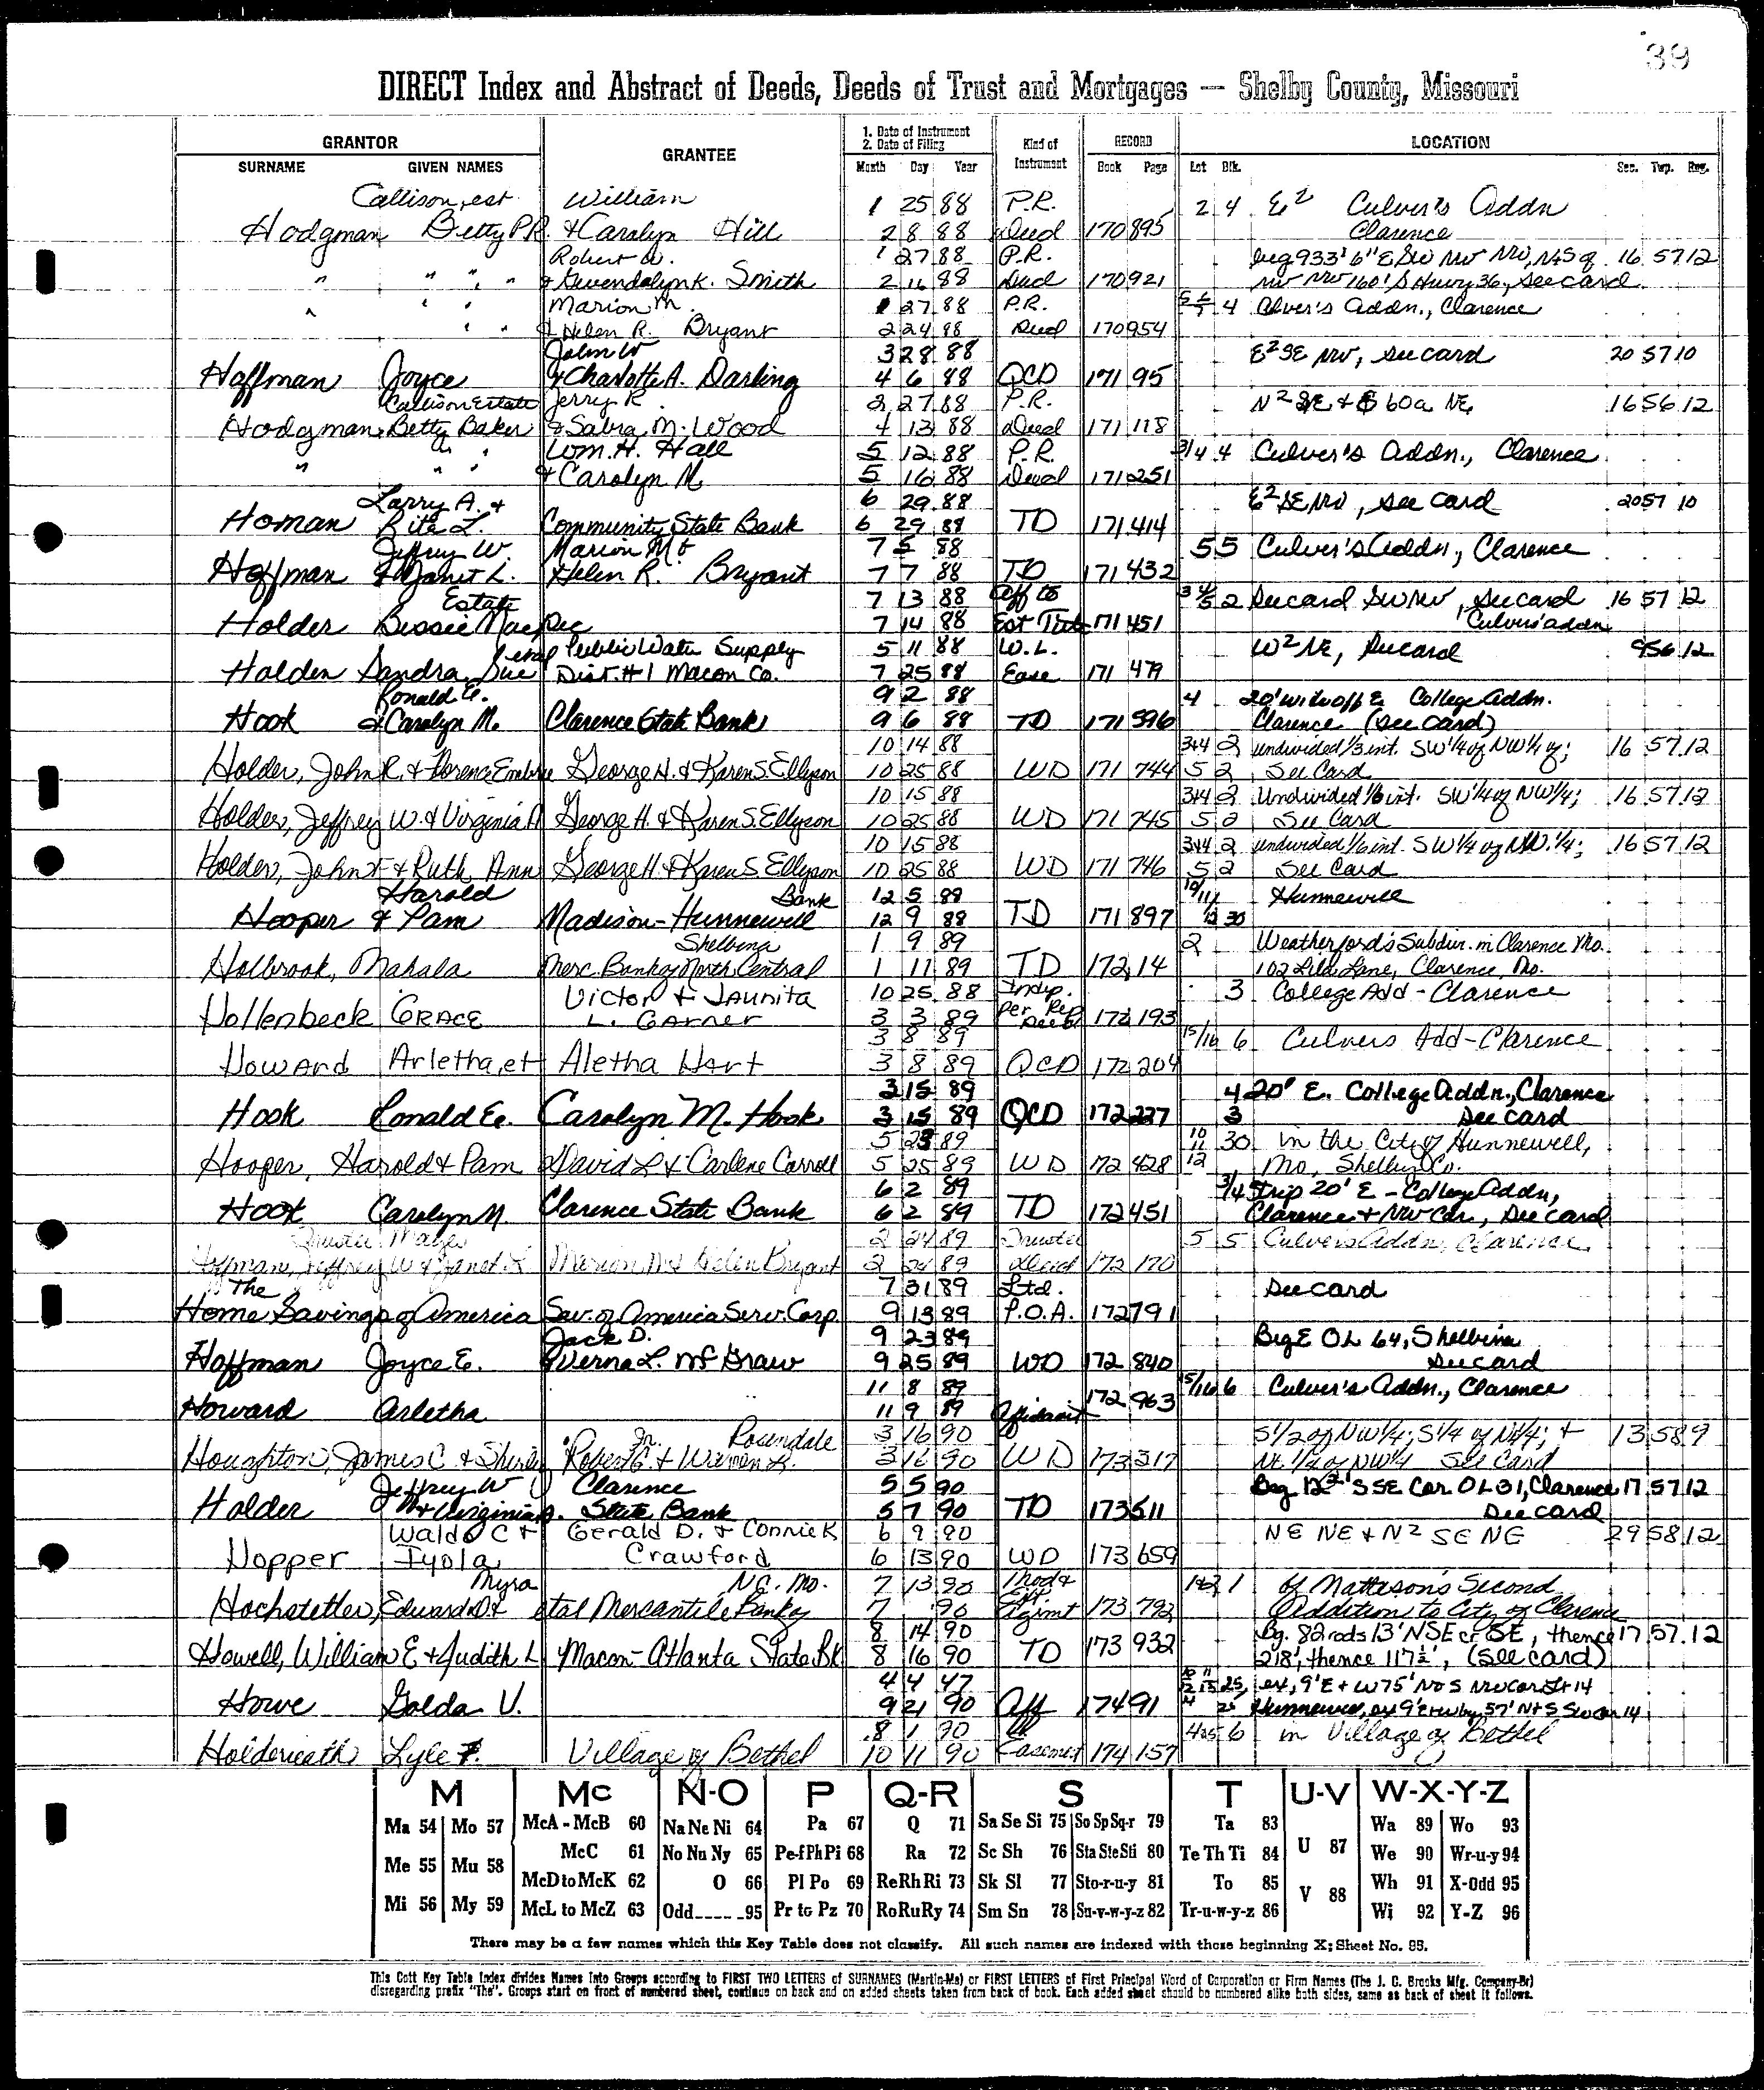 39
DIRECT Index and Abstract of Deeds, Deeds of Trust and Mortgages — Shelby County, Missouri
GRANTOR GRANTEE 1. Date of Instrument 2. Date of Filing Kind of Instrument RECORD LOCATION
SURNAME GIVEN NAMES Month Day Year Book Page Lot Blk. Sec. Twp. Rng.
Callison, est. William 1 25 88 P.R. 2 4 E2 Culver's Addn
Hodgman Betty P.R. & Carolyn Hill 2 8 88 Deed 170 895 Clarence
Robert W. 1 27 88 P.R. beg 933' 6" E, SW NW NW, N&S of 16 57 12
" " " " & Gwendolyn K. Smith 2 16 88 Deed 170 921 NW NW 160' S Hwy 36, see card
" " " Marion M. 1 27 88 P.R. 4 Culver's Addn., Clarence
" " & Helen R. Bryant 2 24 88 Deed 170 954
John W 3 28 88 E2 SE NW, see card 20 57 10
Hoffman Joyce & Charlotte A. Darling 4 6 88 QCD 171 95
Callison Estate Jerry R. 2 27 88 P.R. N2 SE & S 60a NE, 16 56 12
Hodgman, Betty Baker & Sabra M. Wood 4 13 88 Deed 171 118
Wm. H. Hall 5 12 88 P.R. 3/4 4 Culver's Addn., Clarence
" " " & Carolyn M 5 16 88 Deed 171 251
Larry A. & 6 29 88 E2 SE NW, see card 20 57 10
Homan Rita L. Community State Bank 6 29 88 TD 171 414
Jeffrey W. Marion M & 7 5 88 5 5 Culver's Addn, Clarence
Hoffman & Janet L. Helen R. Bryant 7 7 88 TD 171 432
Estate 7 13 88 Aff to 3 4/5 2 See card SW NW, see card 16 57 12
Holder Bessie Mae, Dec 7 14 88 Est Title 171 451 Culver's addn
et al Public Water Supply 5 11 88 W.L. W2 NE, see card 9 56 12
Holden Sandra Sue Dist. #1 Macon Co. 7 25 88 Ease 171 479
Ronald E. 9 2 88 4 20' wide off E College Addn.
Hook & Carolyn M. Clarence State Bank 9 6 88 TD 171 596 Clarence (see card)
10 14 88 3&4 2 undivided 1/3 int. SW 1/4 of NW 1/4 of; 16 57 12
Holder, John R. & Florence Embree George H. & Karen S. Ellyson 10 25 88 WD 171 744 5 2 See Card
10 15 88 3&4 2 Undivided 1/6 int. SW 1/4 of NW 1/4; 16 57 12
Holder, Jeffrey W. & Virginia A George H. & Karen S. Ellyson 10 25 88 WD 171 745 5 2 See Card
10 15 88 3&4 2 undivided 1/6 int. SW 1/4 of NW 1/4; 16 57 12
Holder, John F & Ruth Ann George H. & Karen S. Ellyson 10 25 88 WD 171 746 5 2 See Card
Harold Bank 12 5 88 10/11/ Hunnewell
Hooper & Pam Madison-Hunnewell 12 9 88 TD 171 897 12 30
Shelbina 1 9 89 2 Weatherford's Subdiv. in Clarence Mo.
Holbrook, Mahala Merc. Bank of North Central 1 11 89 TD 172 14 102 Lild Lane, Clarence, Mo.
Victor & Jaunita 10 25 88 Indep. 3 College Add - Clarence
Hollenbeck GRACE L. Garner 3 3 89 Per Rep Deed 172 193
3 8 89 15/16 6 Culvers Add-Clarence
Howard Arletha, et Aletha Hart 3 8 89 QCD 172 204
3 15 89 4 20' E. College Addn., Clarence
Hook Ronald E. Carolyn M. Hook 3 15 89 QCD 172 227 3 See card
5 23 89 10 11 30 in the City of Hunnewell,
Hooper, Harold & Pam David L & Carlene Carroll 5 25 89 WD 172 428 12 Mo, Shelby Co.
6 2 89 3/4 Strip 20' E - College Addn,
Hook Carolyn M. Clarence State Bank 6 2 89 TD 172 451 Clarence & NW Cor, see card
Trustee Mayes 2 24 89 Trustee 5 5 Culvers Addn, Clarence
Hoffman, Jeffrey W & Janet L Marion M & Helen Bryant 2 24 89 Deed 172 170
The 7 31 89 Ltd. See card
Home Savings of America Sav. of America Serv. Corp. 9 13 89 P.O.A. 172 791
Jack D. 9 23 89 Beg E OL 64, Shelbina
Hoffman Joyce E. & Verna L. McGraw 9 25 89 WD 172 840 see card
11 8 89 15/16 6 Culver's Addn., Clarence
Howard Arletha 11 9 89 Affidavit 172 963
Jr. Rosendale 3 16 90 S 1/2 of NW 1/4; S 1/4 of N 1/4; & 13 58 9
Houghton, James C. & Shirley Robert C. & Wilman L. 3 16 90 WD 173 317 NE 1/4 of NW 1/4 See Card
Jeffrey W Clarence 5 5 90 Beg 12 2' S SE Cor OL 31, Clarence 17 57 12
Holder & Virginia A. State Bank 5 7 90 TD 173 511 See card
Waldo C & Gerald D. & Connie K 6 9 90 NE NE & N2 SE NE 29 58 12
Hopper Iyola Crawford 6 13 90 WD 173 659
Myra N.C. Mo. 7 13 90 Mod & 1&2 1 of Matteson's Second
Hochstetler, Edward D & et al Mercantile Bank of 7 90 Ext Agrmt 173 792 Addition to City of Clarence
8 14 90 Bg. 82 rods 13' N SE cr SE, thence 17 57 12
Howell, William E & Judith L Macon-Atlanta State Bk 8 16 90 TD 173 932 218', thence 117 1/2', (see card)
4 4 47 25, ex, 9' E & W 75' N & S NW Cor Lt 14
Howe Golda V. 9 21 90 Aff 174 91 Hunnewell, ex 9' E & W by 57' N & S SW cor 14
8 1 90 4&5 6 in Village of Bethel
Holderieath Lyle F. Village of Bethel 10 11 90 Easement 174 157
M Mc N-O P Q-R S T U-V W-X-Y-Z
Ma 54 Mo 57 McA - McB 60 Na Ne Ni 64 Pa 67 Q 71 Sa Se Si 75 So Sp Sq-r 79 Ta 83 U 87 Wa 89 Wo 93
Me 55 Mu 58 McC 61 No Nu Ny 65 Pe-f Ph Pi 68 Ra 72 Sc Sh 76 Sta Ste Sti 80 Te Th Ti 84 We 90 Wr-u-y 94
McD to McK 62 O 66 Pl Po 69 Re Rh Ri 73 Sk Sl 77 Sto-r-u-y 81 To 85 V 88 Wh 91 X-Odd 95
Mi 56 My 59 McL to McZ 63 Odd---- -95 Pr to Pz 70 Ro Ru Ry 74 Sm Sn 78 Su-v-w-y-z 82 Tr-u-w-y-z 86 Wi 92 Y-Z 96
There may be a few names which this Key Table does not classify. All such names are indexed with those beginning X; Sheet No. 95.
This Cott Key Table Index divides Names Into Groups according to FIRST TWO LETTERS of SURNAMES (Martin-Ma) or FIRST LETTERS of First Principal Word of Corporation or Firm Names (The J. C. Brooks Mfg. Company-Br)
disregarding prefix "The". Groups start on front of numbered sheet, continue on back and on added sheets taken from back of book. Each added sheet should be numbered alike both sides, same as back of sheet it follows.